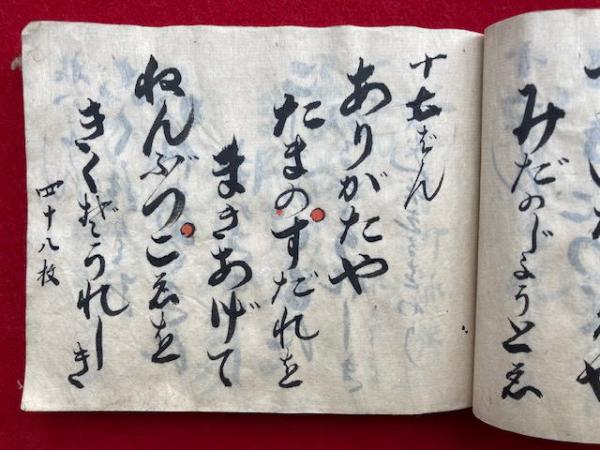 みだのじようとゑ
ばん
ありがたや
たまのすだれを
まきあげて
ねんぶつこゑを
きくぞうれしき
四十八枚